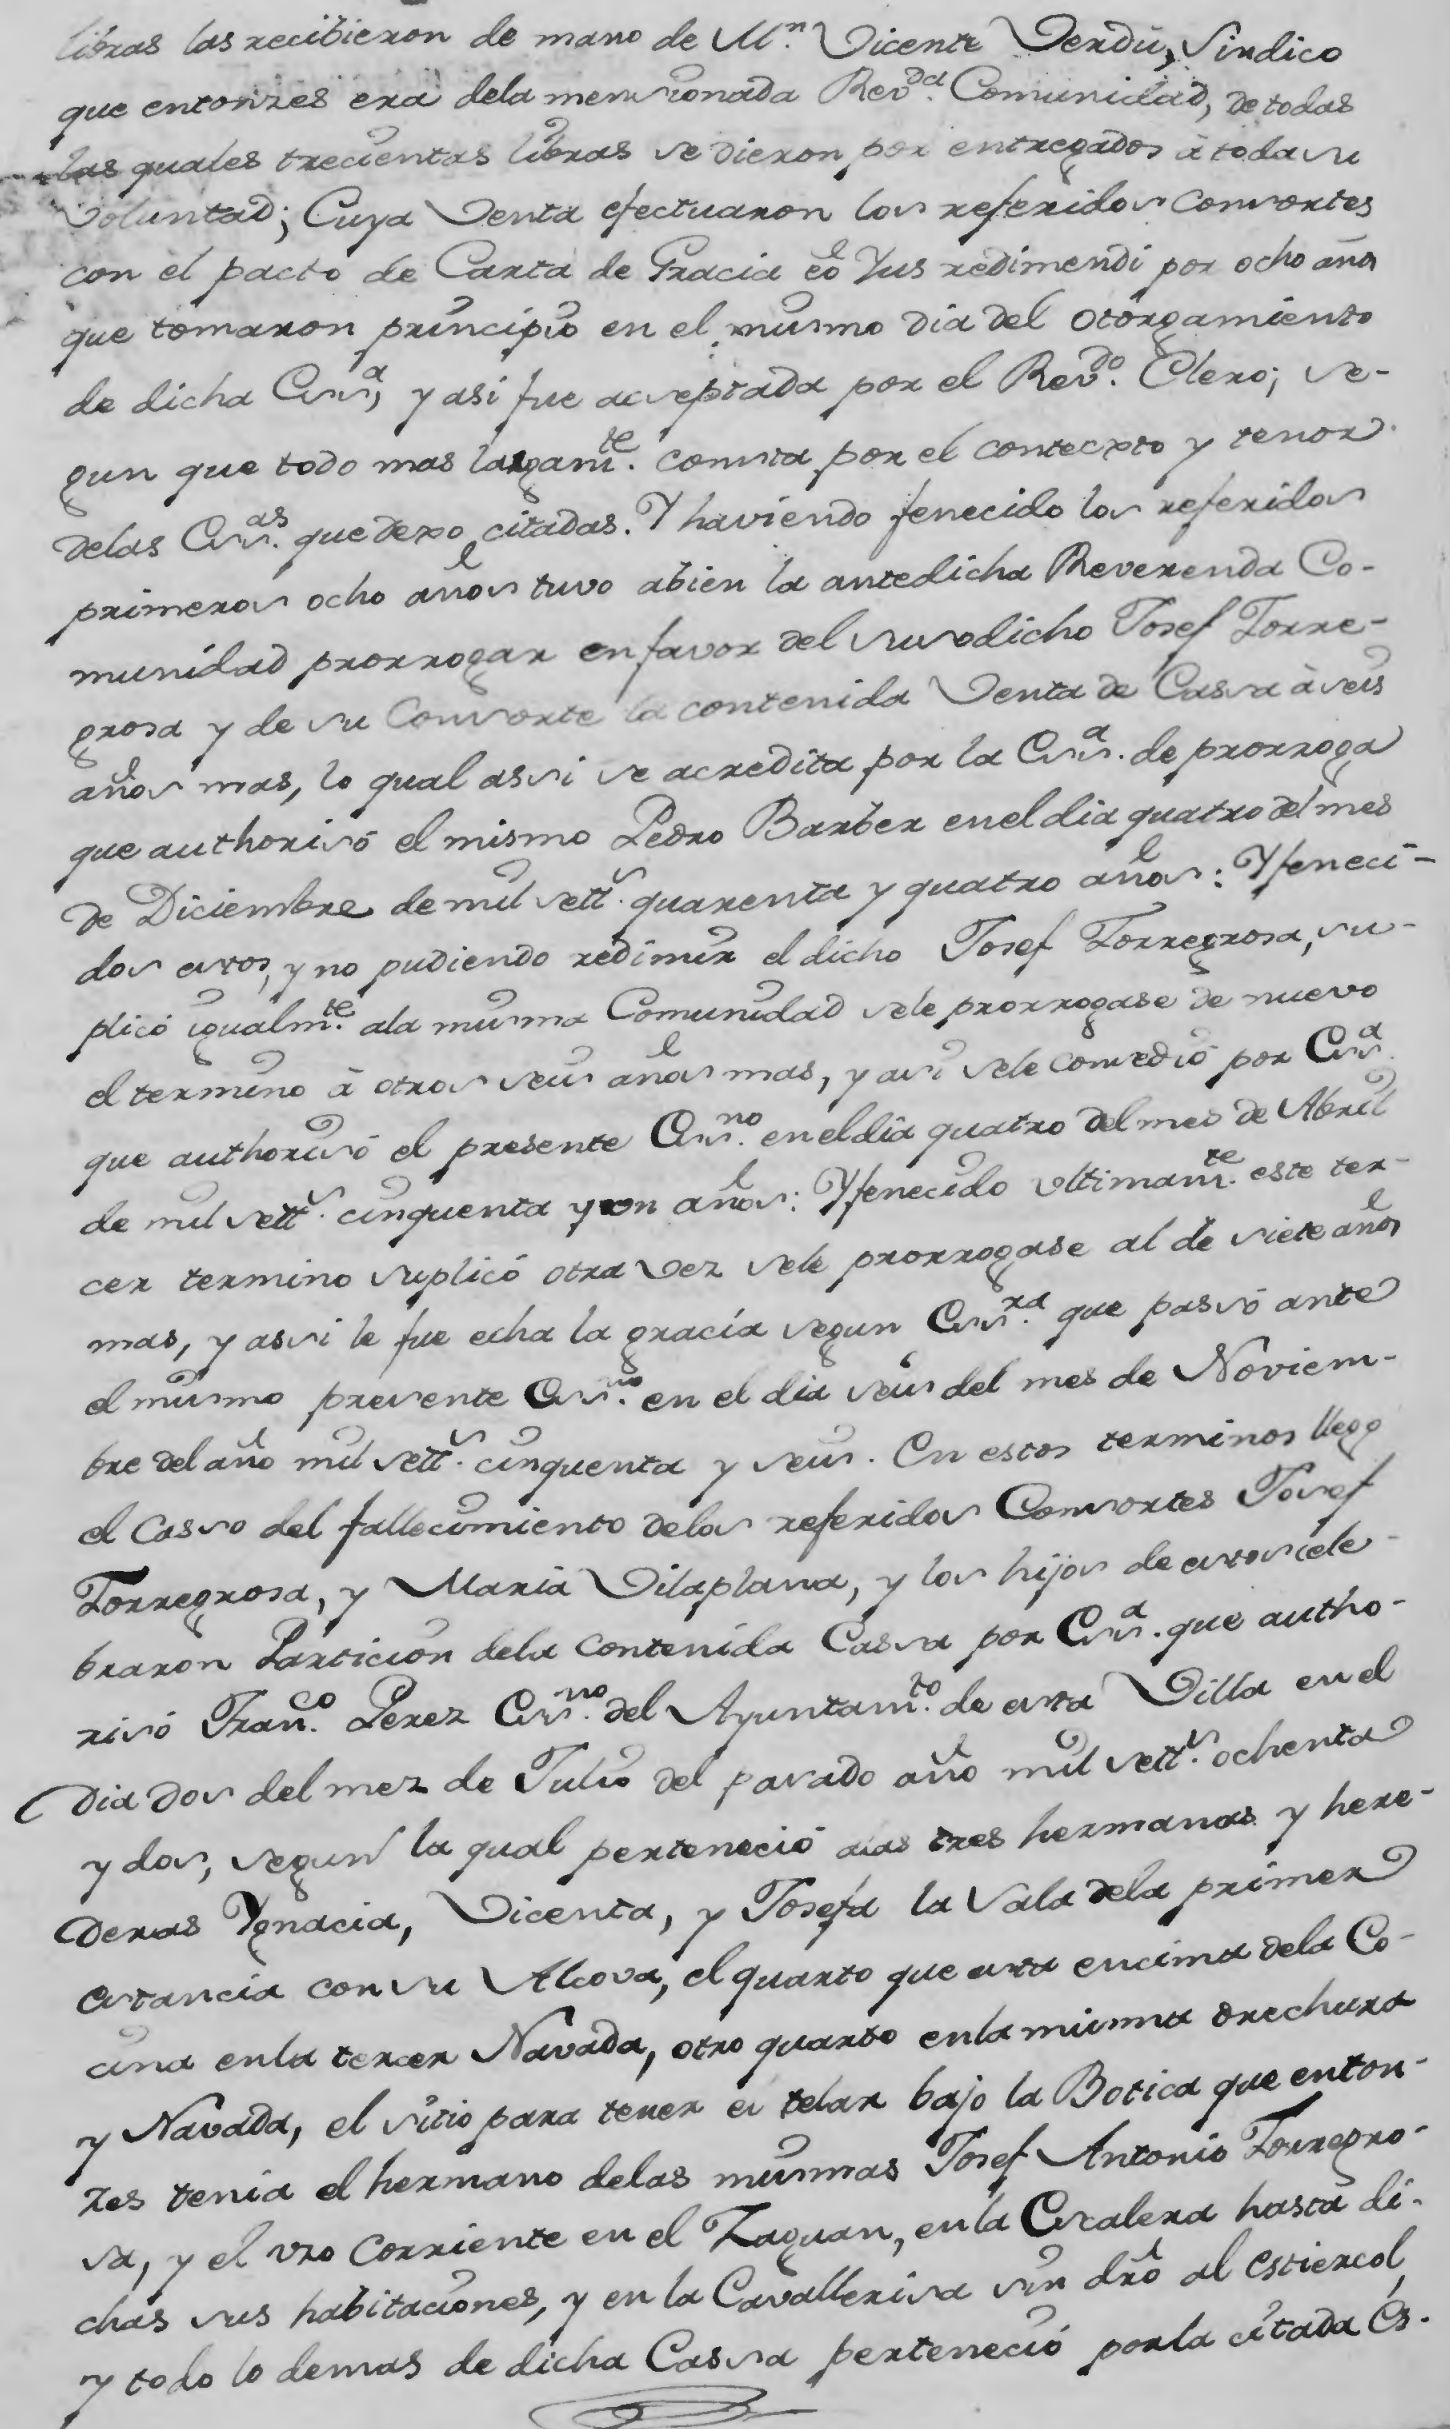 libras las recibieron de mano de Mn. Vicente Verdú, Sindico
que entonzes era dela mensionada Revda. Comunidad, de todas
las quales trecientas libras se dieron por entregados à toda su
voluntad; Cuya Venta efectuaron los referidos Consortes
con el pacto de Carta de Gracia eô Yus redimendi por ocho años
que tomaron principio en el mismo dia del otorgamiento
de dicha Essa, y asi fue acseptada por el Revdo. Clero; se-
gun que todo mas largamte. consta por el contecxto y tenor
delas Essas. que dexo citadas. Y haviendo fenecido los referidos
primeros ocho años tuvo abien la antedicha Reverenda Co-
munidad prorrogar en favor del susodicho Josef Torre-
grosa y de su Consorte la contenida Venta de Cassa à seis
años mas, lo qual assi se acredita por la Essa. de prorroga
que authorisó el mismo Pedro Barber en el dia quatro del mes
de Diciembre de mil setts. quarenta y quatro años: Y feneci-
dos estos, y no pudiendo redimir el dicho Josef Torregrosa, su-
plicó igualmte. ala misma Comunidad sele prorrogase de nuevo
el termino à otros seis años mas, y asi sele consedió por Essa.
que authorisó el presente Essno. en el dia quatro del mes de Abril
de mil setts. cinquenta y un años: Y fenecido ultimamte. este ter-
cer termino suplicó otra vez sele prorrogase al de siete años
mas, y assi le fue echa la gracia segun Essra. que passó ante
el mismo presente Essno. en el dia seis del mes de Noviem-
bre del año mil setts. cinquenta y seis. En estos terminos llegó
el Casso del fallecimiento delos referidos Consortes Josef
Torregrosa, y Maria Vilaplana, y los hijos de estos cele-
braron Particion dela contenida Cassa por Essa. que autho-
risó Franco. Perez Essno. del Ayuntamto. de esta Villa en el
dia dos del mez de Julio del pasado año mil setts. ochenta
y dos, segun la qual perteneció alas tres hermanas y here-
deras Ygnacia, Vicenta, y Josefa la Sala dela primer
Estancia con su Alcova, el quarto que esta encima dela Co-
cina enla tercer Navada, otro quarto enla misma drechura
y Navada, el sitio para tener el telar bajo la Botica que enton-
zes tenia el hermano delas mismas Josef Antonio Torregro-
sa, y el uzo corriente en el Zaguan, enla Escalera hasta di-
chas sus habitaciones, y en la Cavallerisa sin dro al Estiercol,
y todo lo demas de dicha Cassa perteneció por la citada Es-